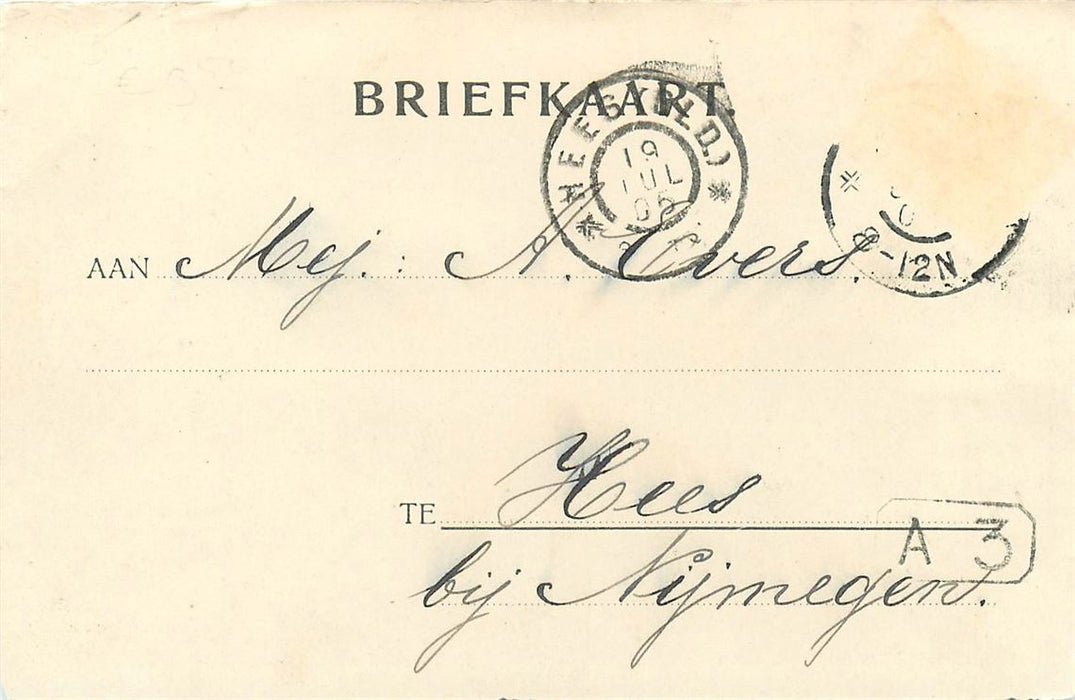 BRIEFKAART.
HEES (GLD.)
19
JUL
05
8-12N
AAN Mej. : A. Evers.
TE Hees
A 3
bij Nijmegen.